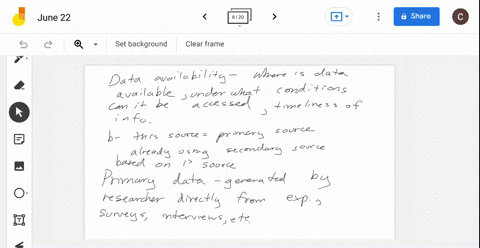 June 22
8 / 20
Share
C
Set background
Clear frame
Data availability - where is data
available, under what conditions
can it be accessed, timeliness of
info.
b- this source = primary source
already using secondary source
based on 1° source
Primary data - generated by
researcher directly from exp.,
surveys, interviews, etc.